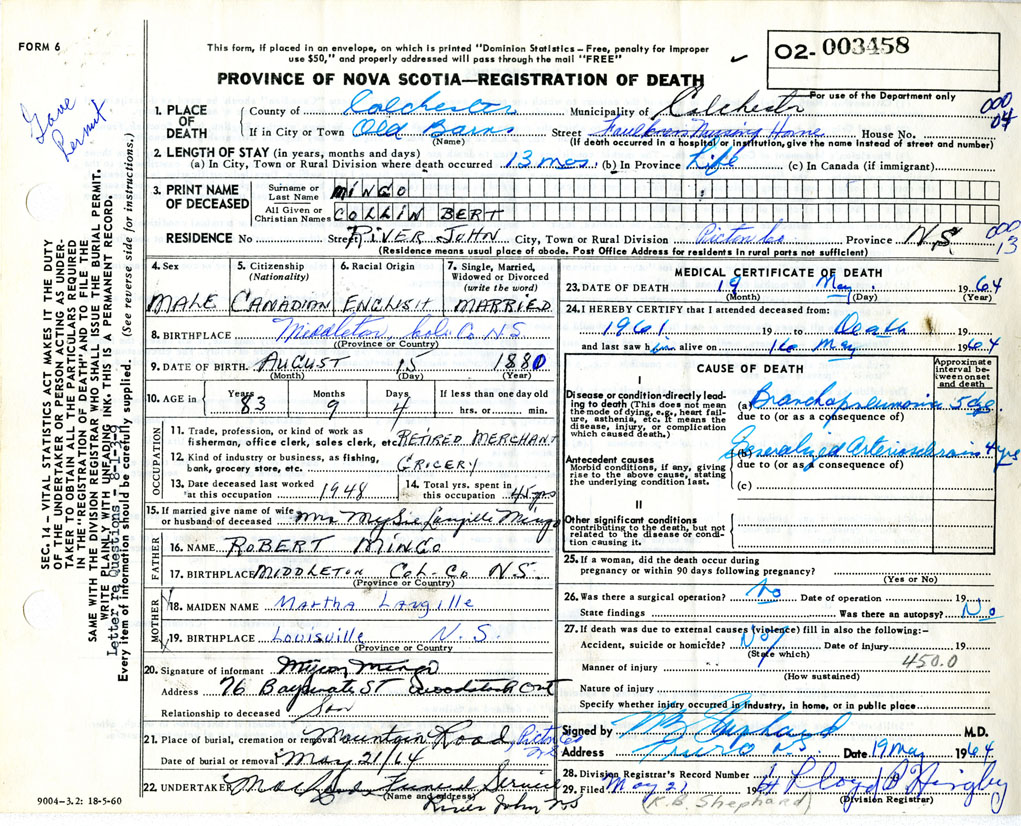 FORM 6
This form, if placed in an envelope, on which is printed "Dominion Statistics – Free, penalty for improper
use $50," and properly addressed will pass through the mail "FREE"
O2- 003458
PROVINCE OF NOVA SCOTIA—REGISTRATION OF DEATH
For use of the Department only
Gave Permit.
SEC. 14 – VITAL STATISTICS ACT MAKES IT THE DUTY
OF THE UNDERTAKER OR PERSON ACTING AS UNDER-
TAKER TO OBTAIN ALL THE PARTICULARS REQUIRED
IN THE "REGISTRATION OF DEATH" AND TO FILE THE
SAME WITH THE DIVISION REGISTRAR WHO SHALL ISSUE THE BURIAL PERMIT.
WRITE PLAINLY WITH UNFADING INK. THIS IS A PERMANENT RECORD.
Letter re Questions 8-1-19
Every item of information should be carefully supplied. (See reverse side for instructions.)
1. PLACE OF DEATH County of Colchester Municipality of Colchestr 000 04
If in City or Town Old Barns Street Faulkners Nursing Home House No.
(Name) (If death occurred in a hospital or institution, give the name instead of street and number)
2. LENGTH OF STAY (in years, months and days)
(a) In City, Town or Rural Division where death occurred 13 mos. (b) In Province Life (c) In Canada (if immigrant)
3. PRINT NAME OF DECEASED Surname or Last Name MINGO
All Given or Christian Names COLLIN BERT
RESIDENCE No Street RIVER JOHN City, Town or Rural Division Pictou Co Province N.S 000 13
(Residence means usual place of abode. Post Office Address for residents in rural parts not sufficient)
4. Sex 5. Citizenship (Nationality) 6. Racial Origin 7. Single, Married, Widowed or Divorced (write the word)
MALE CANADIAN ENGLISH MARRIED
8. BIRTHPLACE Middleton, Col. Co N S
(Province or Country)
9. DATE OF BIRTH. AUGUST 15 1880
(Month) (Day) (Year)
10. AGE in Years 83 Months 9 Days 4 If less than one day old hrs. or min.
OCCUPATION
11. Trade, profession, or kind of work as
fisherman, office clerk, sales clerk, etc. RETIRED MERCHANT
12. Kind of industry or business, as fishing,
bank, grocery store, etc. GROCERY
13. Date deceased last worked at this occupation 1948 14. Total yrs. spent in this occupation 45 yrs
15. If married give name of wife
or husband of deceased Mrs MySie Langille Mingo
FATHER
16. NAME ROBERT MINGO
17. BIRTHPLACE MIDDLETON COL-CO N.S.
(Province or Country)
MOTHER
18. MAIDEN NAME Martha Langille
19. BIRTHPLACE Louisville N.S.
(Province or Country)
20. Signature of informant Mingo
Address 76 St Woodstock Ont
Relationship to deceased Son
21. Place of burial, cremation or removal Mountain Road, Pictou Co N.S
Date of burial or removal May 21/64
22. UNDERTAKER Funeral Service
(Name and address) River John NS
9004-3.2: 18-5-60
MEDICAL CERTIFICATE OF DEATH
23. DATE OF DEATH 19 May. 1964
(Month) (Day) (Year)
24. I HEREBY CERTIFY that I attended deceased from:
1961 19 to Death 19
and last saw him alive on 16 May 1964
CAUSE OF DEATH
Approximate interval between onset and death
I
Disease or condition directly leading to death (This does not mean
the mode of dying, e.g., heart failure, asthenia, etc. It means the
disease, injury, or complication which caused death.)
(a) Bronchopneumonia 5 dys.
due to (or as a consequence of)
Antecedent causes
Morbid conditions, if any, giving rise to the above cause, stating
the underlying condition last.
(b) Generalized Arteriosclerosis 4 yrs
due to (or as a consequence of)
(c)
II
Other significant conditions
contributing to the death, but not related to the disease or condition causing it.
25. If a woman, did the death occur during
pregnancy or within 90 days following pregnancy?
(Yes or No)
26. Was there a surgical operation? No Date of operation 19
State findings Was there an autopsy? No
27. If death was due to external causes (violence) fill in also the following:–
Accident, suicide or homicide? No Date of injury 19
(State which) 450.0
Manner of injury
(How sustained)
Nature of injury
Specify whether injury occurred in industry, in home, or in public place
Signed by Shephard M.D.
Address Truro N.S Date 19 May 1964
28. Division Registrar's Record Number
29. Filed May 21 1964 Lloyd B.
(K.B. Shephard) (Division Registrar)